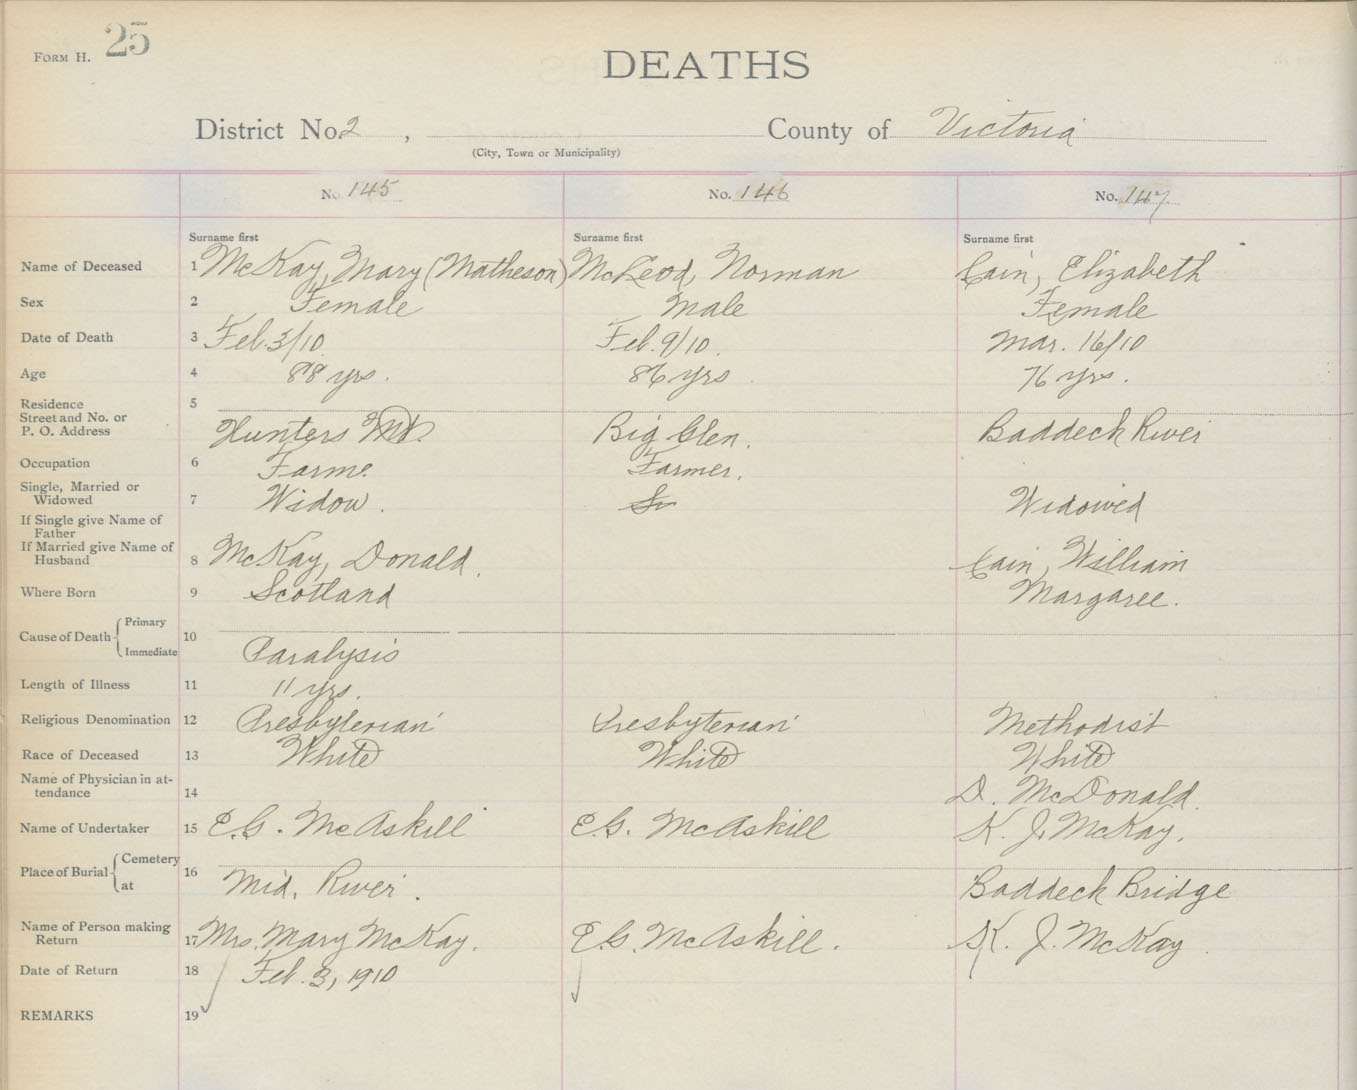 FORM H. 25
DEATHS
District No. 2 , County of Victoria
(City, Town or Municipality)
No. 145 No. 146 No. 147
Surname first Surname first Surname first
Name of Deceased 1 McKay, Mary (Matheson) McLeod, Norman Cain, Elizabeth
Sex 2 Female Male Female
Date of Death 3 Feb. 3/10 Feb. 9/10. Mar. 16/10
Age 4 88 yrs. 86 yrs 76 yrs.
Residence 5
Street and No. or
P. O. Address Hunters Mt. Big Glen. Baddeck River
Occupation 6 Farme. Farmer.
Single, Married or
Widowed 7 Widow. Widowed
If Single give Name of
Father
If Married give Name of
Husband 8 McKay, Donald. Cain, William
Where Born 9 Scotland Margaree.
Cause of Death Primary 10
Immediate Paralysis
Length of Illness 11 11 yrs.
Religious Denomination 12 Presbyterian Presbyterian Methodist
Race of Deceased 13 White White White
Name of Physician in at-
tendance 14 D. McDonald.
Name of Undertaker 15 E.G. McAskill E.G. McAskill K. J. McKay.
Place of Burial Cemetery 16
at Mid. River. Baddeck Bridge
Name of Person making
Return 17 Mrs. Mary McKay. E.G. McAskill. K. J. McKay.
Date of Return 18 Feb. 3, 1910
REMARKS 19